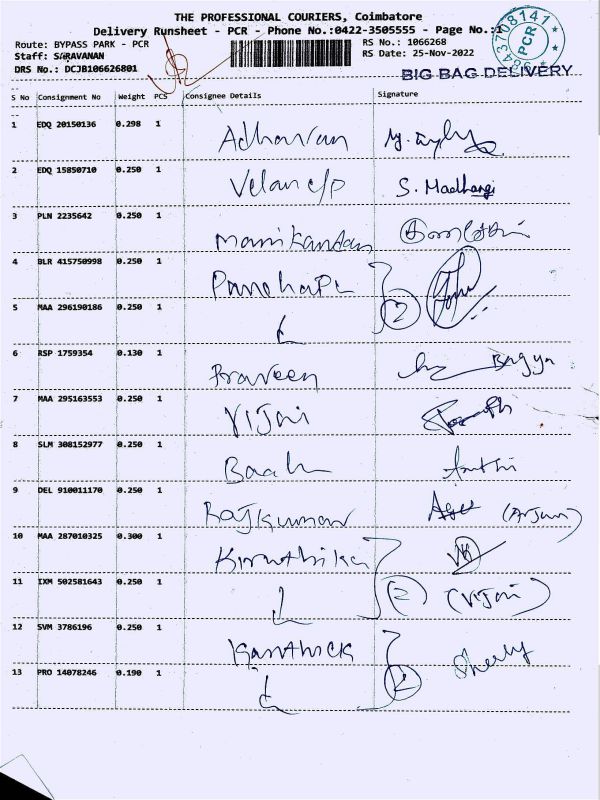 THE PROFESSIONAL COURIERS, Coimbatore
Delivery Runsheet - PCR - Phone No.:0422-3505555 - Page No.:1
Route: BYPASS PARK - PCR RS No.: 1066268
Staff: SARAVANAN RS Date: 25-Nov-2022
DRS No.: DCJB106626801
PCR
BIG BAG DELIVERY
S No Consignment No Weight PCS Consignee Details Signature
1 EDQ 20150136 0.298 1 Adhavan
2 EDQ 15850710 0.250 1 Velan c/o S. Madhangi
3 PLN 2235642 0.250 1 manikandan
4 BLR 415750998 0.250 1 2
5 MAA 296190186 0.250 1
6 RSP 1759354 0.130 1 Praveen Bagya
7 MAA 295163553 0.250 1 Vijai
8 SLM 308152977 0.250 1
9 DEL 910011170 0.250 1 Rajkumar (Arjun)
10 MAA 287010325 0.300 1 Kiruthika
11 IXM 502581643 0.250 1 (2) (Vijai)
12 SVM 3786196 0.250 1 Karthick
13 PRO 14078246 0.190 1 2